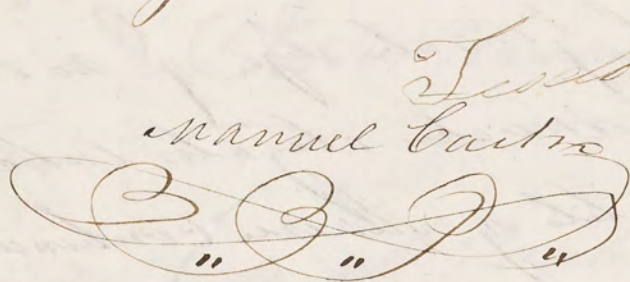 Manuel Castro